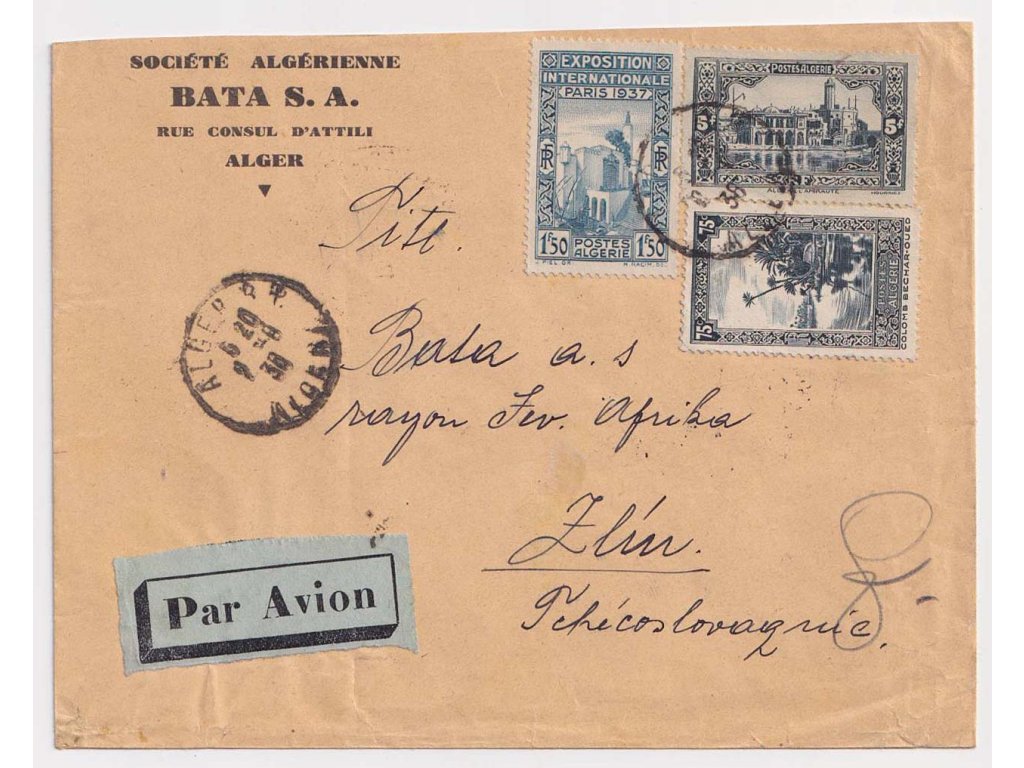 SOCIÉTÉ ALGÉRIENNE
BATA S. A.
RUE CONSUL D'ATTILI
ALGER
EXPOSITION
INTERNATIONALE
PARIS 1937
RF
RF
1F50
POSTES
ALGERIE
1F50
POSTES ALGERIE
5F
5F
ALGER L'AMIRAUTÉ
75c
75c
POSTES
ALGERIE
COLOMB BECHAR-OUED
ALGER R.P.
20
36
Titl.
Bata a. s
rayon Sev. Afrika
Zlín.
Tchécoslovaquie.
8,-
Par Avion